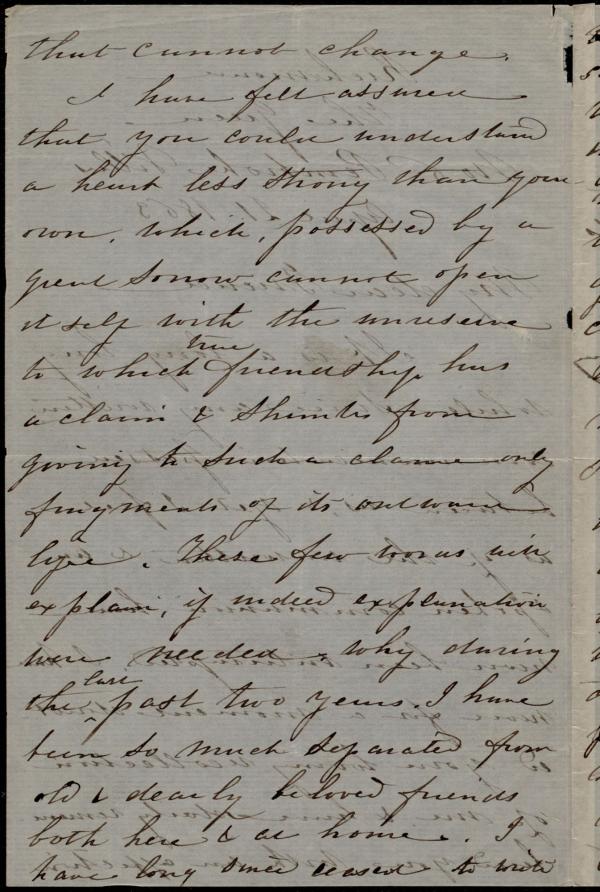 that cannot change.
I have felt assured
that you could understand
a heart less strong than your
own, which, possessed by a
great sorrow cannot open
itself with the unreserve
true
to which friendship has
a claim & shrinks from
giving to such a claim only
fragments of its outward
life. These few words will
explain, if indeed explanation
were needed, why during
last
the past two years, I have
been so much separated from
old & dearly beloved friends
both here & at home. I
have long since ceased to write